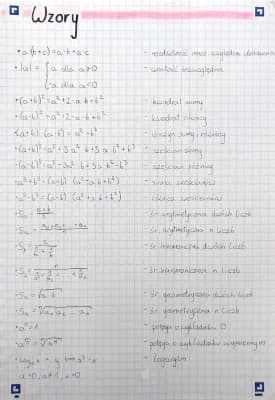 Wzory
• a(b+c)=a·b+a·c - rozdzielność względem dodawania
• |a| = { a dla a≥0 - wartość bezwzględna
-a dla a<0
• (a+b)² = a²+2·a·b+b² - kwadrat sumy
• (a-b)² = a²-2·a·b+b² - kwadrat różnicy
• (a+b)·(a-b) = a²-b² - iloczyn sumy i różnicy
• (a+b)³ = a³+3a²·b+3a·b²+b³ - sześcian sumy
• (a-b)³ = a³-3a²·b+3a·b²-b³ - sześcian różnicy
• a³+b³ = (a+b)·(a²-a·b+b²) - suma sześcianów
• a³-b³ = (a-b)·(a²+a·b+b²) - różnica sześcianów
- śr. arytmetyczna dwóch liczb
- śr. arytmetyczna n liczb
- śr. harmoniczna dwóch liczb
- śr. harmoniczna n liczb
- śr. geometryczna dwóch liczb
- śr. geometryczna n liczb
• a⁰=1 - potęga o wykładniku 0
- potęga o wykładniku wymiernym
- logarytm